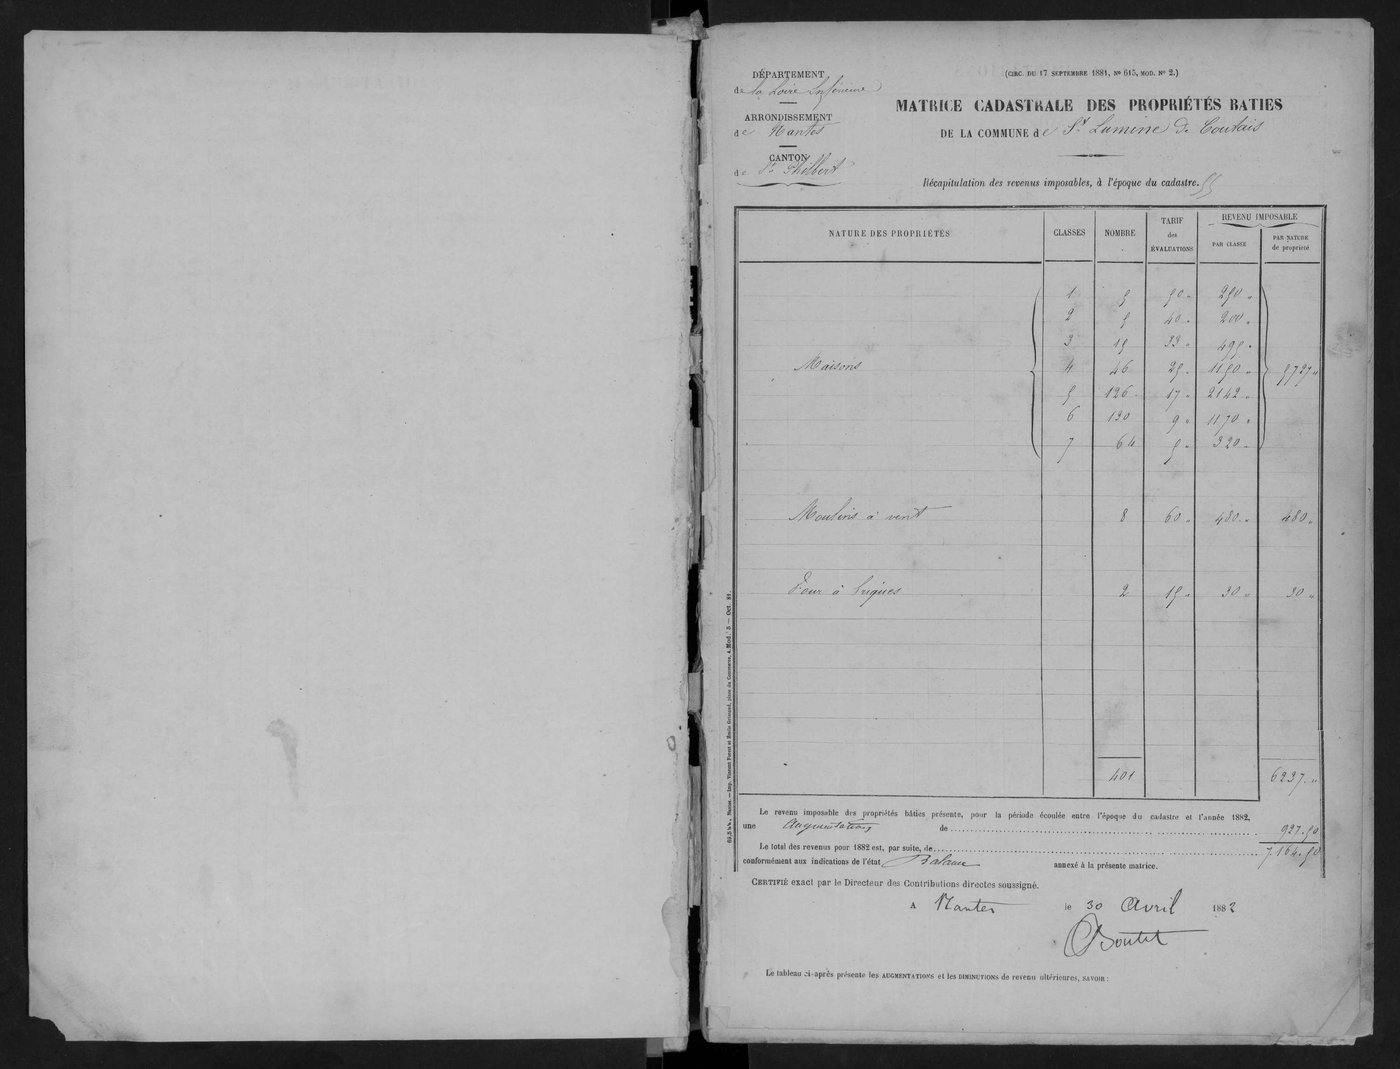 DÉPARTEMENT
de la Loire Inférieure
ARRONDISSEMENT
de Nantes
CANTON
de St Philbert
(CIRC. DU 17 SEPTEMBRE 1881, No 615, MOD. No 2.)
MATRICE CADASTRALE DES PROPRIÉTÉS BATIES
DE LA COMMUNE de St Lumine De Coutais
Récapitulation des revenus imposables, à l'époque du cadastre.
NATURE DES PROPRIÉTÉS CLASSES NOMBRE TARIF des ÉVALUATIONS REVENU IMPOSABLE
PAR CLASSE PAR NATURE de propriété
1 5 50 " 250 "
2 5 40 " 200 "
3 15 33 " 495 "
Maisons 4 46 25 " 1150 " 5727 "
5 126 17 " 2142 "
6 130 9 " 1170 "
7 64 5 " 320 "
Moulins à vent 8 60 " 480 " 480 "
Four à briques 2 15 " 30 " 30 "
401 6237 "
Le revenu imposable des propriétés bâties présente, pour la période écoulée entre l'époque du cadastre et l'année 1882,
une augmentation de 927.50
Le total des revenus pour 1882 est, par suite, de 7.164.50
conformément aux indications de l'état Balance annexé à la présente matrice.
CERTIFIÉ exact par le Directeur des Contributions directes soussigné.
A Nantes le 30 Avril 1882
Boutet
Le tableau ci-après présente les AUGMENTATIONS et les DIMINUTIONS de revenu ultérieures, SAVOIR :
Nantes. — Imp. Vincent Forest et Emile Grimaud, place du Commerce, 4. Mod. 3 — Oct. 81.